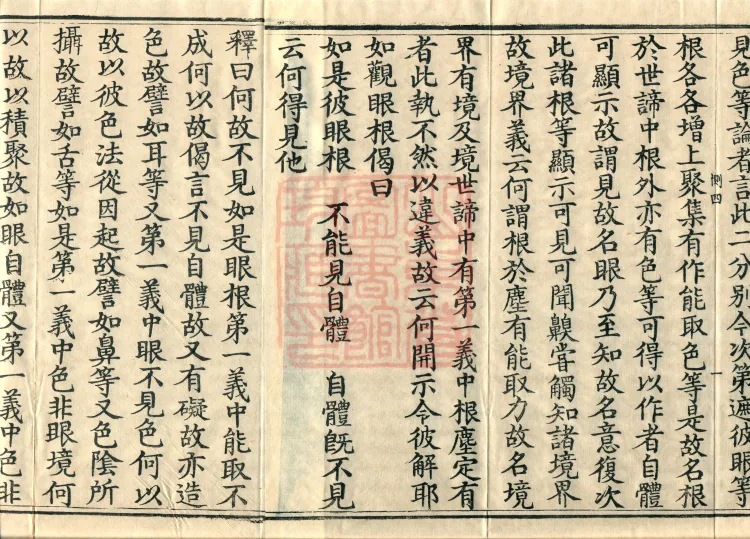 見色等論者言此二分別今次第遮彼眼等
根各各增上聚集有作能取色等是故名根
於世諦中根外亦有色等可得以作者自體
可顯示故謂見故名眼乃至知故名意復次
此諸根等顯示可見可聞齅甞觸知諸境界
故境界義云何謂根於塵有能取力故名境
界有境及境世諦中有第一義中根塵定有
者此執不然以違義故云何開示令彼解耶
如觀眼根偈曰
如是彼眼根 不能見自體 自體旣不見
云何得見他
釋曰何故不見如是眼根第一義中能取不
成何以故偈言不見自體故又有礙故亦造
色故譬如耳等又第一義中眼不見色何以
故以彼色法從因起故譬如鼻等又色陰所
攝故譬如舌等如是第一義中色非眼境何
以故以積聚故如眼自體又第一義中色非
惻四
一